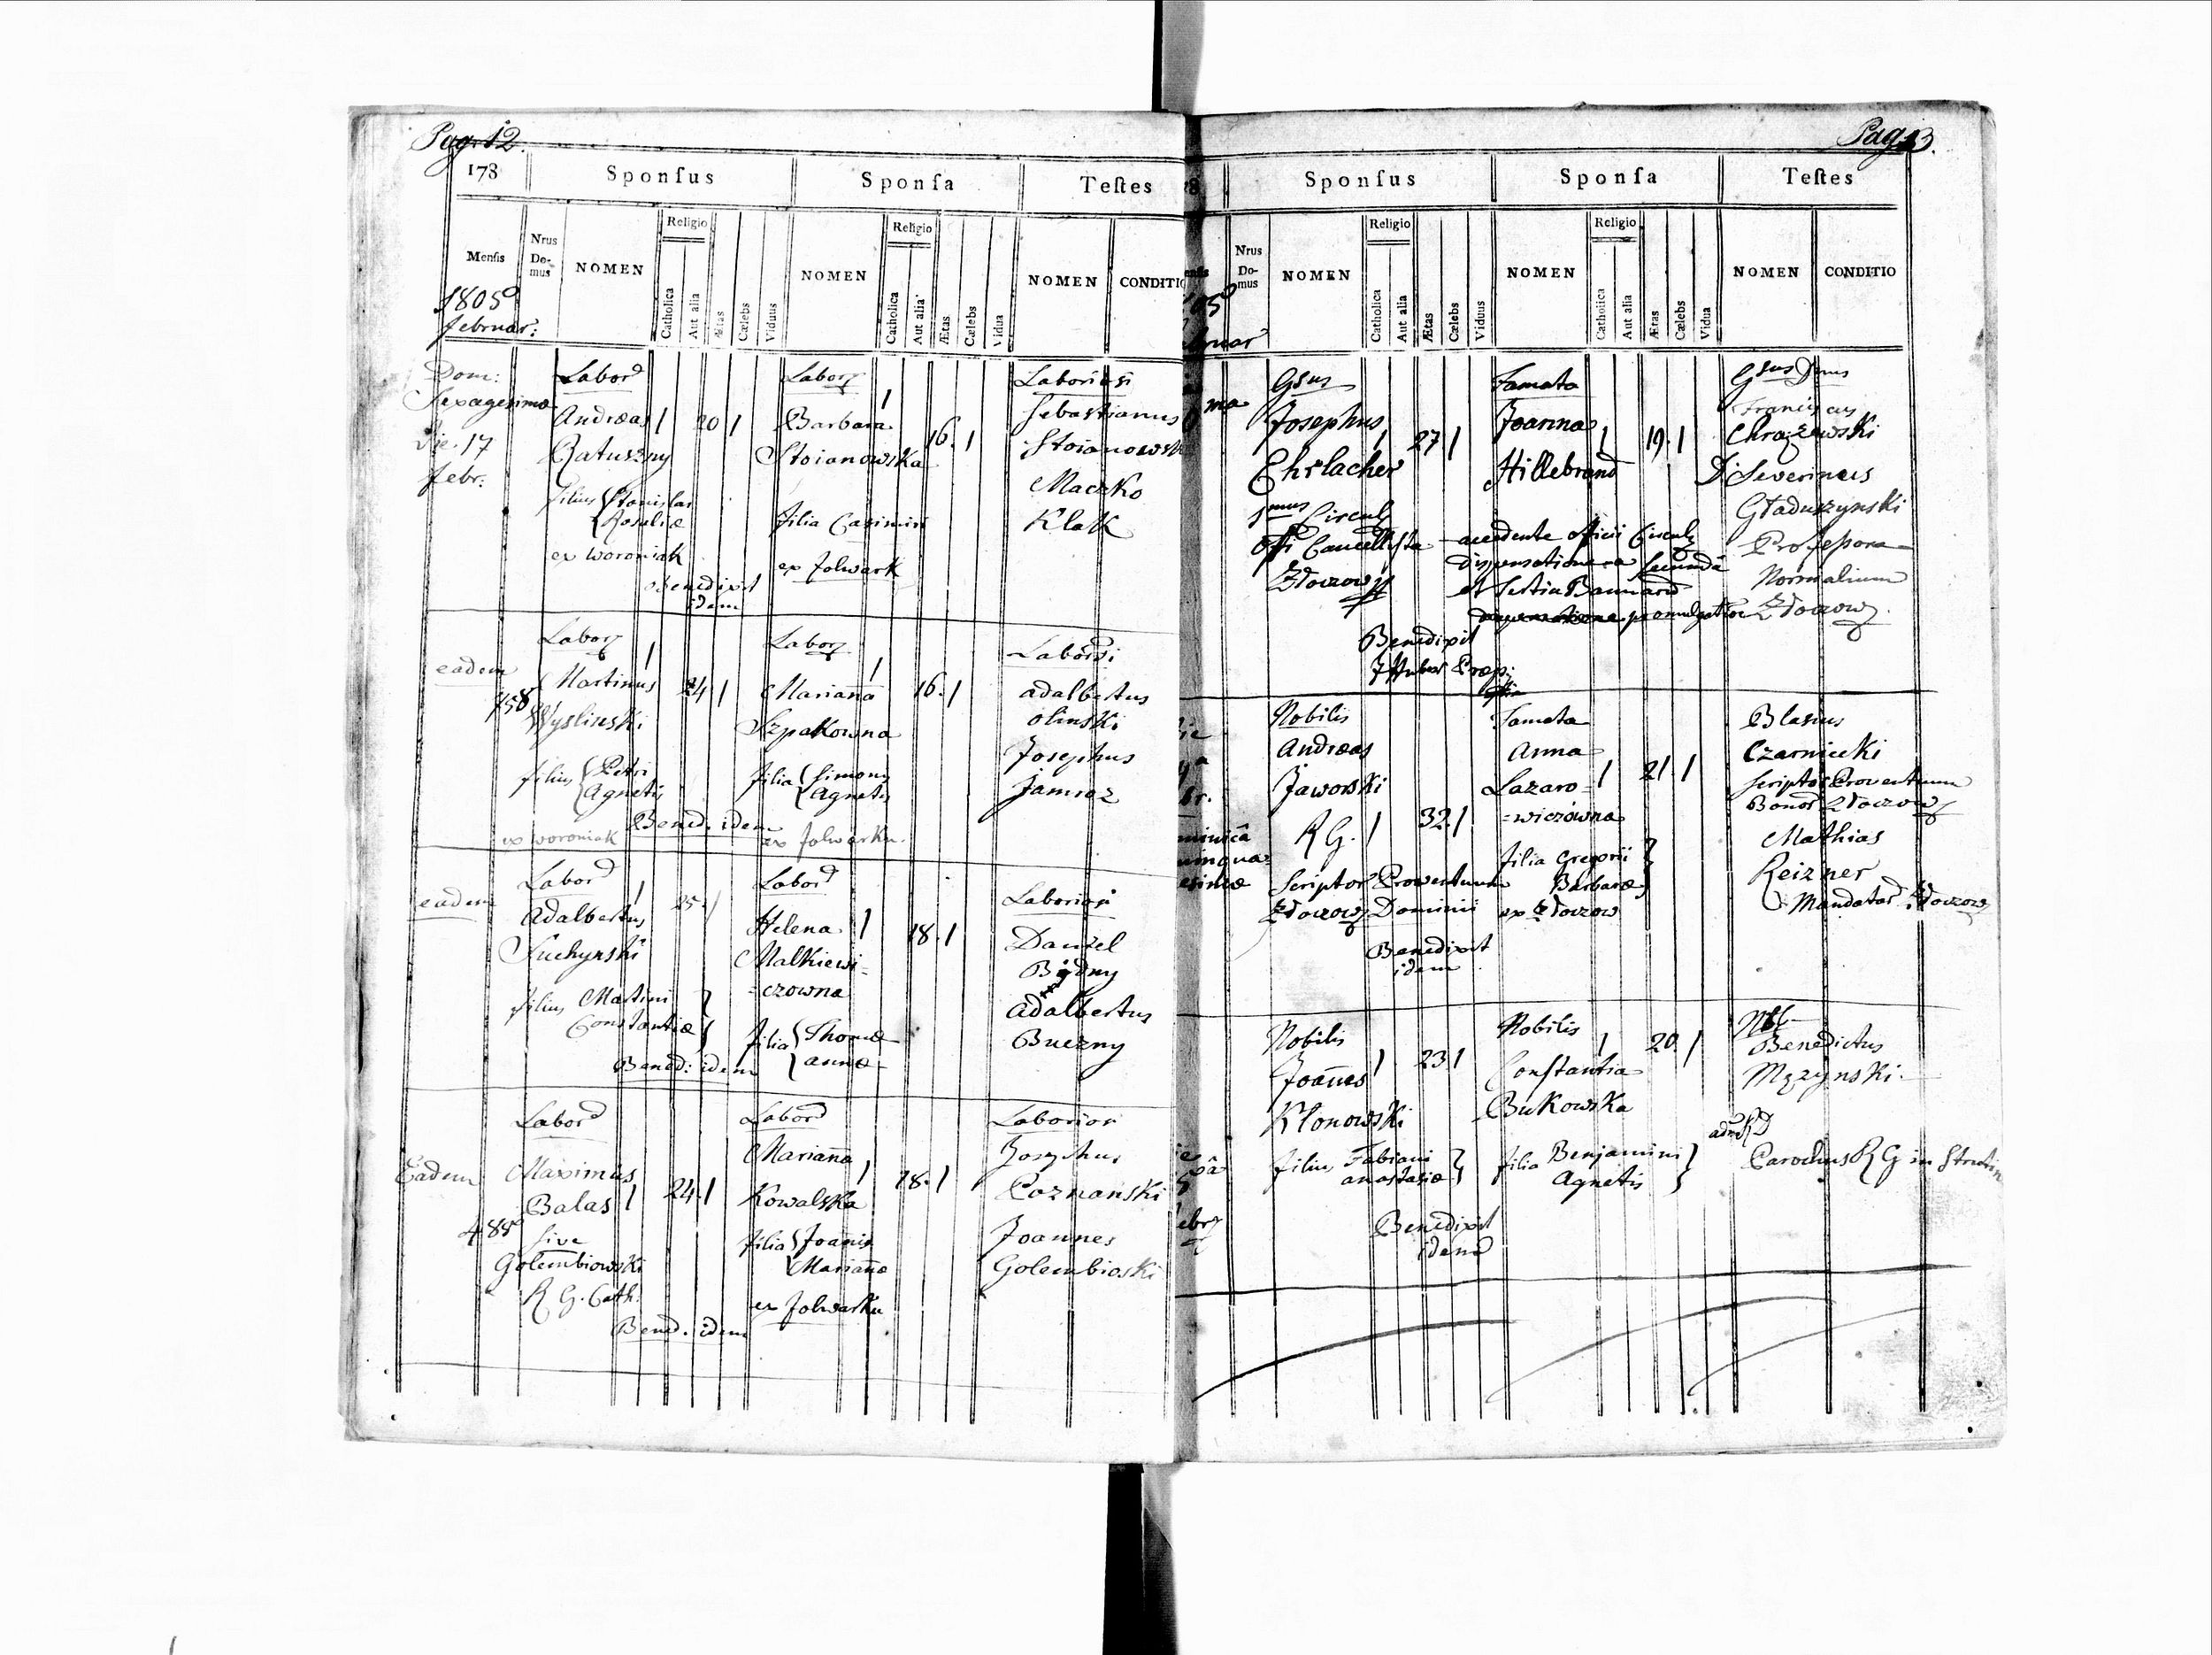 Pag. 12.
178
Sponsus
Sponsa
Testes
Mensis
Nrus Domus
NOMEN
Religio
Catholica
Aut alia
Ætas
Cælebs
Viduus
NOMEN
Religio
Catholica
Aut alia
Ætas
Cælebs
Vidua
NOMEN
CONDITIO
1805
februar:
Dom: Labor Labor Laboriosi
Sexagesimæ Andreas 1 20 1 Barbara 1 16. 1 Sebastianus
Die. 17 Ratuszny Stoianowska Stoianowski
febr.
filius Stanislai Maczko
Rosaliæ filia Casimiri Klak
ex Woroniak ex folwark
Benedixit
idem
Labor Labor Laboriosi
eadem Martinus 1 24 1 Marianna 1 16. 1 adalbertus
158 Wyslinski Szpakowna olinski
filius Petri filia Simonis Josephus
Agnetis Agnetis Jamroz
ex woroniak Bened. idem ex folwarku.
Labor Labor
eadem Adalbertus 1 25. 1 Helena 1 18. 1 Laboriosi
Suchynski Malkiewi= Daniel
=czowna Bidny
filius Martini adalbertus
Constantiæ filia Thomæ Buczny
Bened: idem annæ
Labor Labor Laboriosi
Marianna Josephus
Eadem Maximus
Balas 1 24. 1 Kowalska 1 18. 1 Poznanski
488 sive filia Joannis Joannes
Golembiowski Mariannæ Golembioski
R G. Cath. ex folwarku
Bened. idem
Pag. 13.
Sponsus
Sponsa
Testes
Nrus Domus
NOMEN
Religio
Catholica
Aut alia
Ætas
Cælebs
Viduus
NOMEN
Religio
Catholica
Aut alia
Ætas
Cælebs
Vidua
NOMEN
CONDITIO
Gsus Famata Gsus Dnus
Josephus 1 27 1 Joanna 1 19. 1 Franciscus
Chrazewski
Ehrlacher Hillebrand D. Severinus
Gladuszynski
Circul accedente officii Circul Professor
Cancellista dispensatione a secunda Normalium
Złoczow et tertia Bannor Złoczow
promulgatione
Benedixit
J Huber Præp.
Nobilis Famata Blasius
Andreas Anna Czarniecki
Jaworski Lazaro= 1 21. 1 Scriptor Proventuum
Bonor Złoczow
R G. 1 32. 1 =wiczowna Mathias
filia Gregorii Reizner
Scriptor Proventuum Barbaræ Mandatar Złoczow
Złoczow Dominii ex Złoczow
Benedixit
idem
Nobilis Nobilis Nbl
Joannes 1 23 1 Constantia 1 20. 1 Benedictus
Klonowski Bukowska Męzynski
filius Fabiani filia Benjamini Parochus R G in Strutin
anastasiæ Agnetis
Benedixit
idem